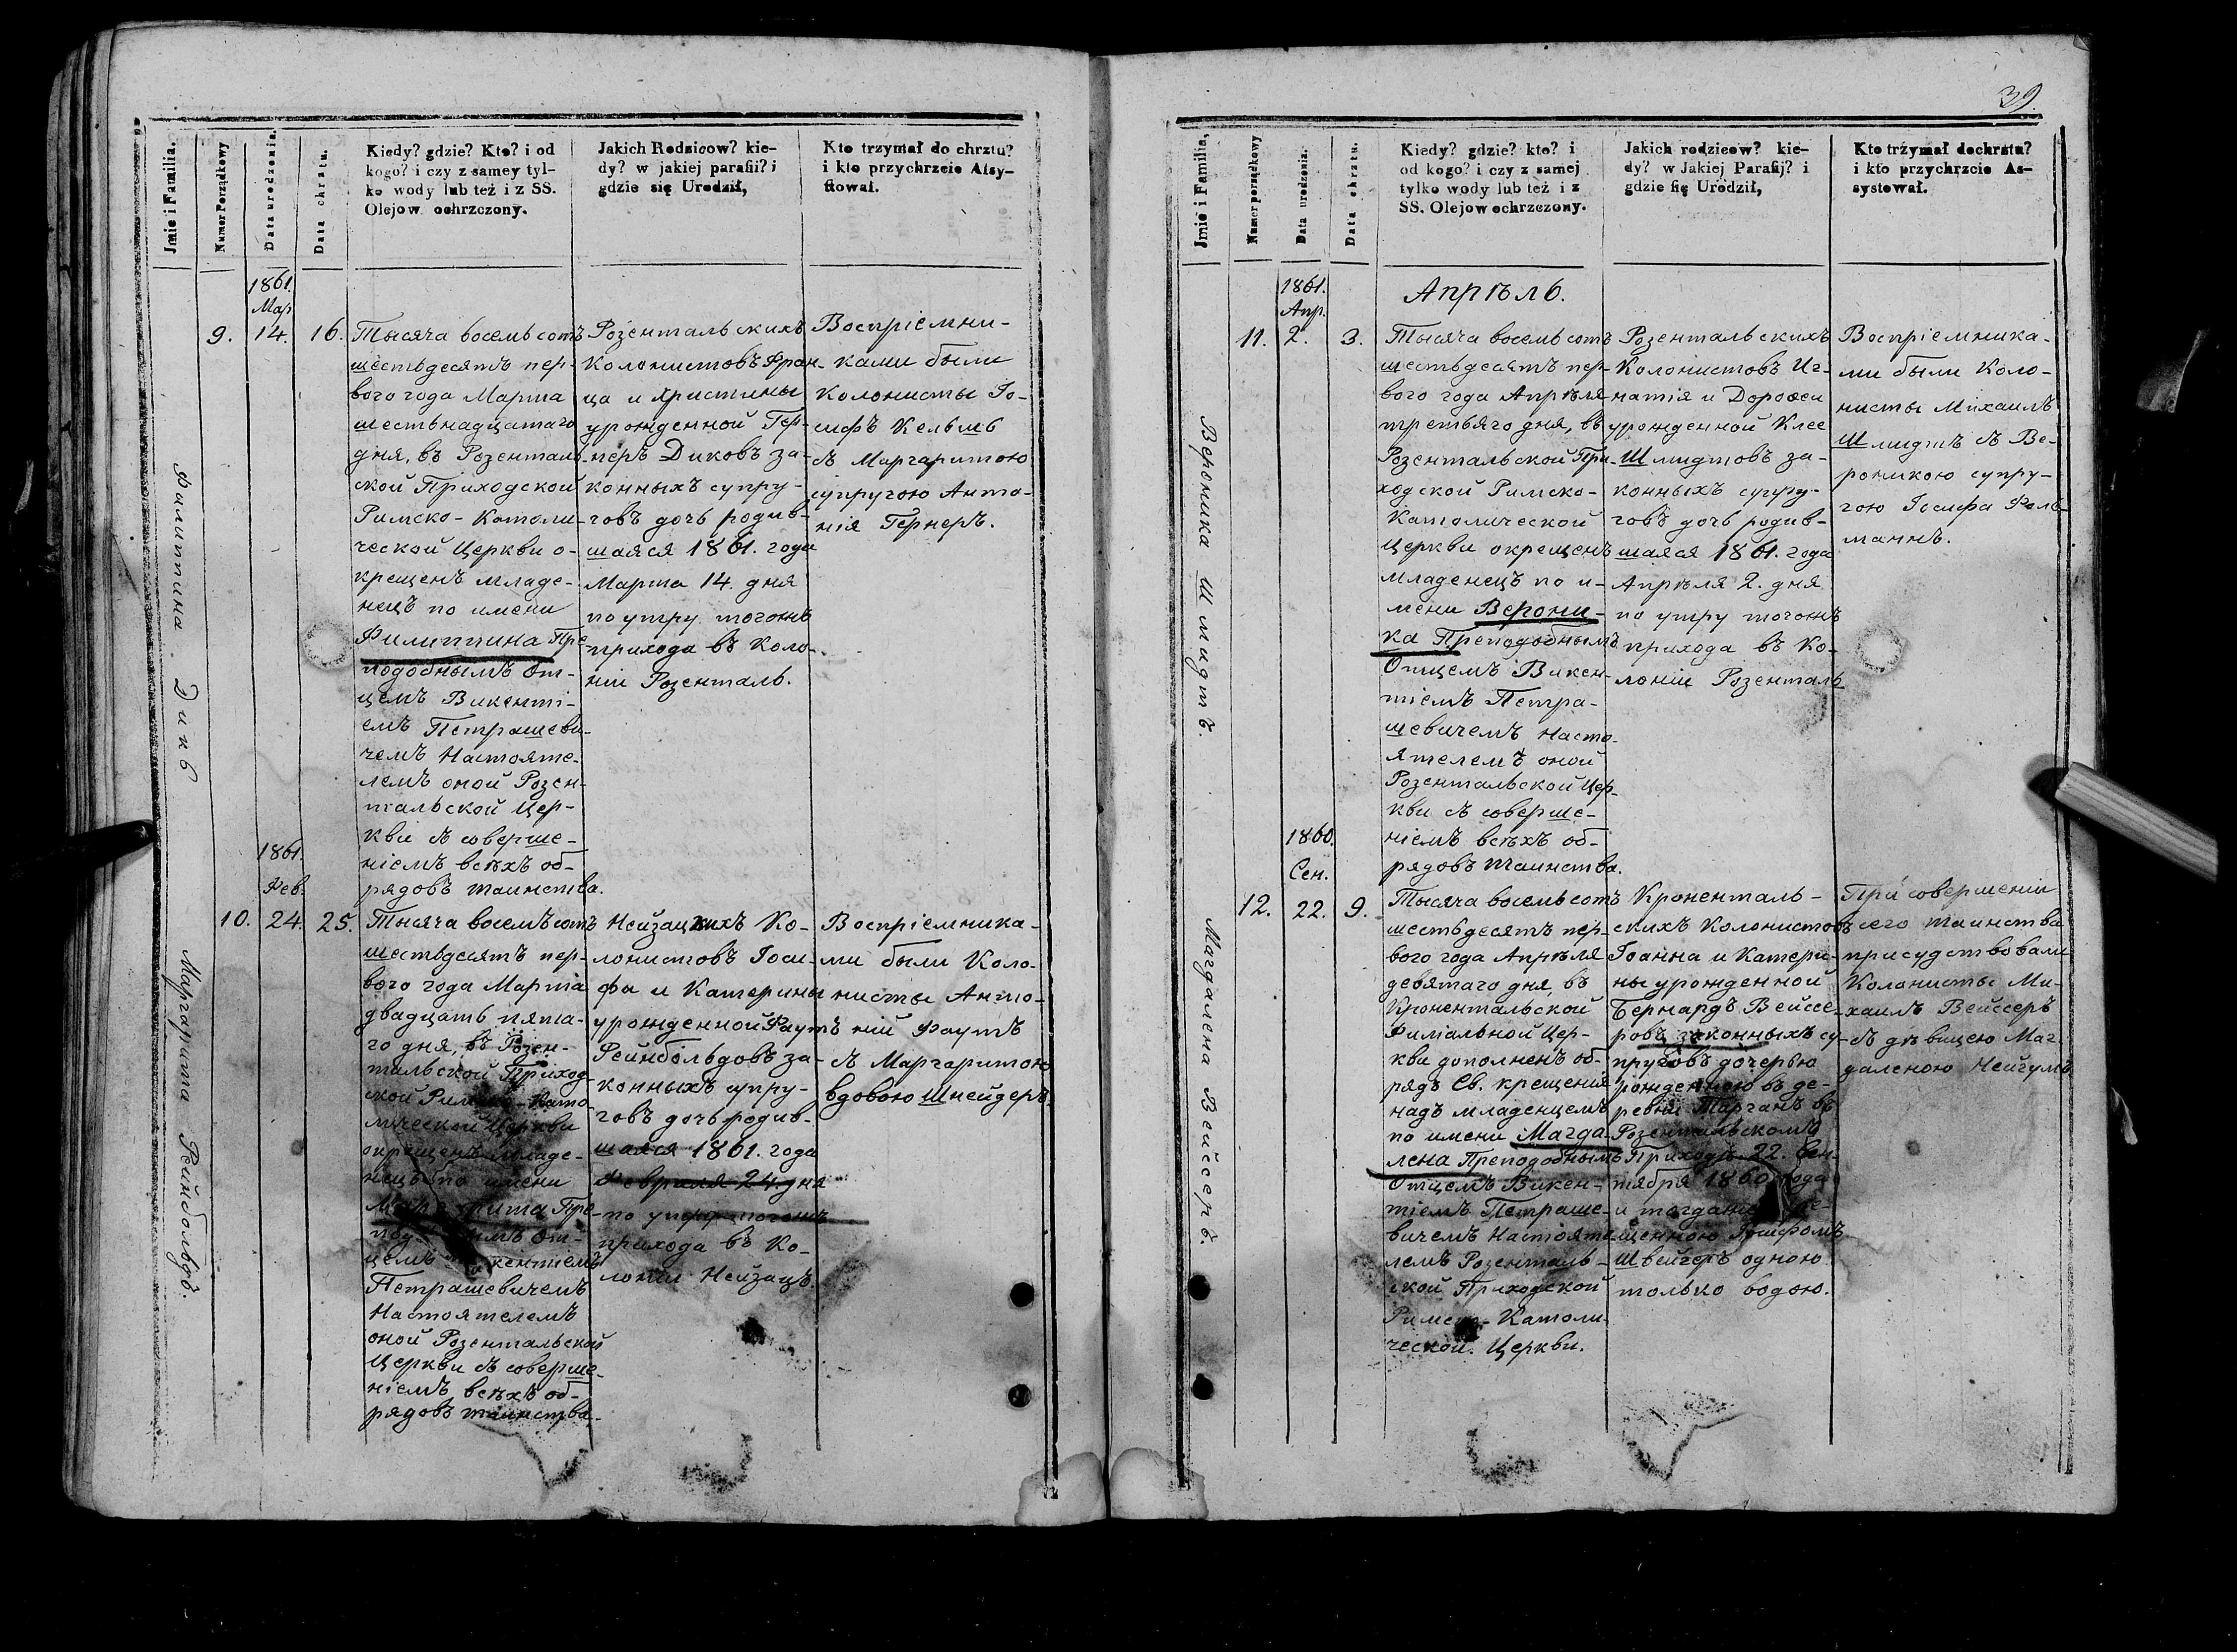 39.
Jmie i Familia.
Numer Porządkowy
Data urodzenia.
Data chrztu.
Kiedy? gdzie? Kto? i od
kogo? i czy z samey tyl-
ko wody lub też i z SS.
Olejow ochrzczony.
Jakich Rodzicow? kie-
dy? w jakiej parafii? i
gdzie się Urodził,
Kto trzymał do chrztu?
i kto przychrzcie Assy-
stował.
Филиппина Дикъ
1861.
Мар.
9. 14. 16.
Тысяча восемьсотъ
шестьдесятъ пер-
вого года Марта
шестьнадцатаго
дня, въ Розенталь-
ской Приходской
Римско-Католи-
ческой Церкви о-
крещенъ младе-
нецъ по имени
Филиппина Пре-
подобнымъ От-
цемъ Викенті-
емъ Петрашеви-
чемъ Настояте-
лемъ оной Розен-
тальской Цер-
кви съ соверше-
ніемъ всѣхъ об-
рядовъ таинства.
Розентальскихъ
Колонистовъ Фран-
ца и Христины
урожденной Гер-
неръ Диковъ за-
конныхъ супру-
говъ дочь родив-
шаяся 1861. года
Марта 14. дня
по утру тогожъ
прихода въ Коло-
ніи Розенталь.
Воспріемни-
ками были
Колонисты Іо-
сифъ Кельшъ
съ Маргаритою
супругою Анто-
нія Гернеръ.
Маргарита Рейнбольдъ.
1861.
Фев.
10. 24. 25.
Тысяча восемьсотъ
шестьдесятъ пер-
вого года Марта
двадцать пята-
го дня, въ Розен-
тальской Приход-
ской Римско-Като-
лической Церкви
окрещенъ младе-
нецъ по имени
Маргарита Пре-
От-
цемъ Викентіемъ
Петрашевичемъ
Настоятелемъ
оной Розентальской
Церкви съ соверше-
ніемъ всѣхъ об-
рядовъ таинства.
Нейзацкихъ Ко-
лонистовъ Іоси-
фа и Катерины
урожденной Фаутъ
Рейнбольдовъ за-
конныхъ супру-
говъ дочь родив-
шаяся 1861. года
Февраля 24. дня
по утру тогожъ
прихода въ Ко-
лоніи Нейзацъ.
Воспріемника-
ми были Коло-
нисты Анто-
ній Фаутъ
съ Маргаритою
вдовою Шнейдеръ.
Jmie i Familia.
Numer porządkowy
Data urodzenia.
Data chrztu.
Kiedy? gdzie? kto? i
od kogo? i czy z samej
tylko wody lub też i z
SS. Olejow ochrzczony.
Jakich rodzicow? kie-
dy? w Jakiej Parafij? i
gdzie się Urodził,
Kto trżymał dochrztu?
i kto przychrzcie As-
systował.
Вероника Шмидтъ.
1861.
Апр.
Апрѣль.
11. 2. 3.
Тысяча восемьсотъ
шестьдесятъ пер-
вого года Апрѣля
третьяго дня, въ
Розентальской При-
ходской Римско-
Католической
Церкви окрещенъ
младенецъ по и-
мени Верони-
ка Преподобнымъ
Отцемъ Викен-
тіемъ Петра-
шевичемъ Насто-
ятелемъ оной
Розентальской Цер-
кви съ соверше-
ніемъ всѣхъ об-
рядовъ таинства.
Розентальскихъ
Колонистовъ Иг-
натія и Дорофеи
урожденной Клее
Шмидтовъ за-
конныхъ супру-
говъ дочь родив-
шаяся 1861. года
Апрѣля 2. дня
по утру тогожъ
прихода въ Ко-
лоніи Розенталь
Воспріемника-
ми были Коло-
нисты Михаилъ
Шмидтъ съ Ве-
роникою супру-
гою Іосифа Фоль-
маннъ.
Магдалена Вейсеръ.
1860.
Сен.
12. 22. 9.
Тысяча восемьсотъ
шестьдесятъ пер-
вого года Апрѣля
девятаго дня, въ
Кронентальской
Филіальной Цер-
кви дополненъ об-
рядъ Св. крещенія
надъ младенцемъ
по имени Магда-
лена Преподобнымъ
Отцемъ Викен-
тіемъ Петраше-
вичемъ Настояте-
лемъ Розенталь-
ской Приходской
Римско-Католи-
ческой Церкви.
Кроненталь-
скихъ Колонистовъ
Іоанна и Катери-
ны урожденной
Бернардъ Вейссе-
ровъ законныхъ су-
пруговъ дочерью
рожденною въ де-
ревни Тарганъ въ
Розентальскомъ
Приходѣ 22. Сен-
тября 1860 года
и тогдаже кре-
щенною Іосифомъ
Швейгеръ одною
только водою.
При совершеніи
сего таинства
присудствовали
Колонисты Ми-
хаилъ Вейссеръ
съ дѣвицею Маг-
даленою Нейгумъ